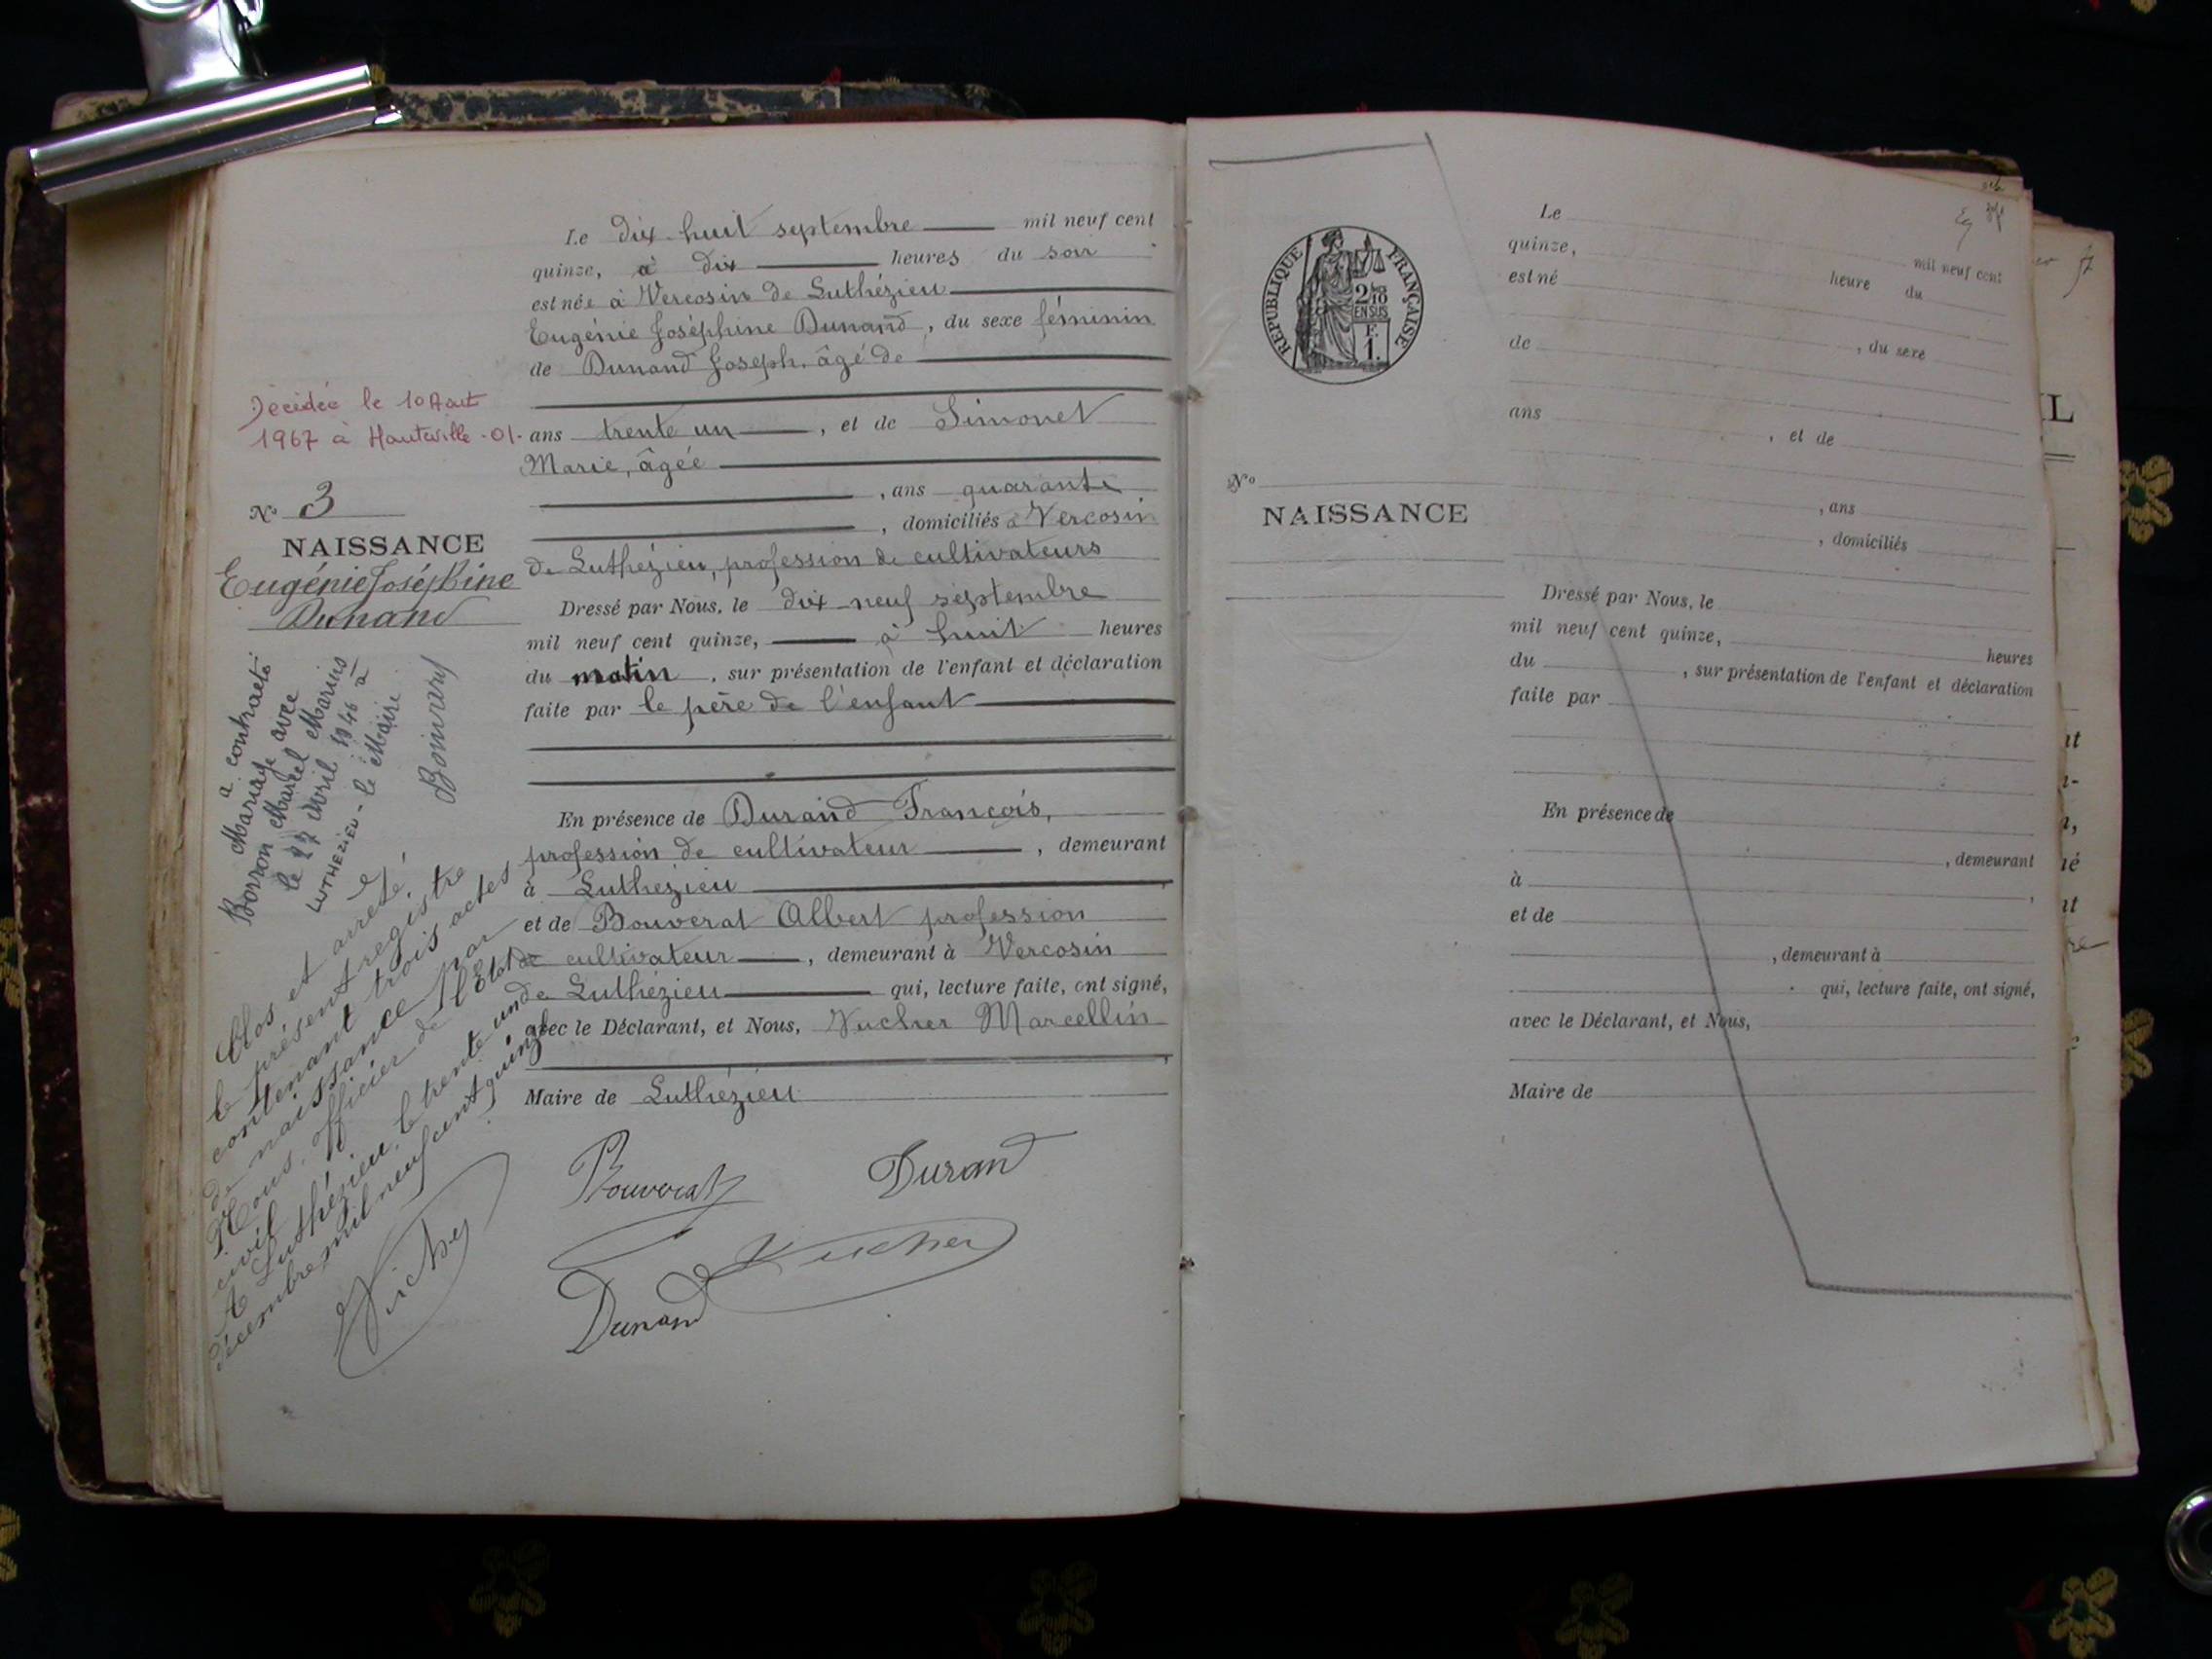 Le dix-huit septembre mil neuf cent
quinze, à dix heures du soir
est née à Vercosin de Luthézieu
Eugénie Joséphine Dunand, du sexe féminin
de Dunand Joseph, âgé de
ans trente un, et de Simonet
Marie, âgée
, ans quarante
, domiciliés à Vercosin
de Luthézieu, profession de cultivateurs
Dressé par Nous, le dix neuf septembre
mil neuf cent quinze, à huit heures
du matin, sur présentation de l'enfant et déclaration
faite par le père de l'enfant
En présence de Durand François,
profession de cultivateur, demeurant
à Luthézieu,
et de Bouverat Albert profession
de cultivateur, demeurant à Vercosin
de Luthézieu qui, lecture faite, ont signé,
avec le Déclarant, et Nous, Vucher Marcellin
,
Maire de Luthézieu
Bouverat Durand
Vucher
Dunand
Décédée le 10 Aout
1967 à Hauteville -01-
N° 3
NAISSANCE
Eugénie Joséphine
Dunand
a contracté
Mariage avec
Borron Marcel Marius
le 27 Avril 1946 à
LUTHEZIEU - le Maire
Clos et arrêté,
le présent registre
contenant trois actes
de naissance par
Nous, officier de l'Etat
civil
A Luthézieu, le trente un
décembre mil neuf cent quinze
Vucher
REPUBLIQUE FRANÇAISE
2/10
EN SUS
F.
1.
N°
NAISSANCE
Le mil neuf cent
quinze, heure du
est né
de , du sexe
ans , et de
, ans
, domiciliés
Dressé par Nous, le
mil neuf cent quinze, heures
du , sur présentation de l'enfant et déclaration
faite par
En présence de
, demeurant
à ,
et de
, demeurant à
qui, lecture faite, ont signé,
avec le Déclarant, et Nous,
Maire de
IL